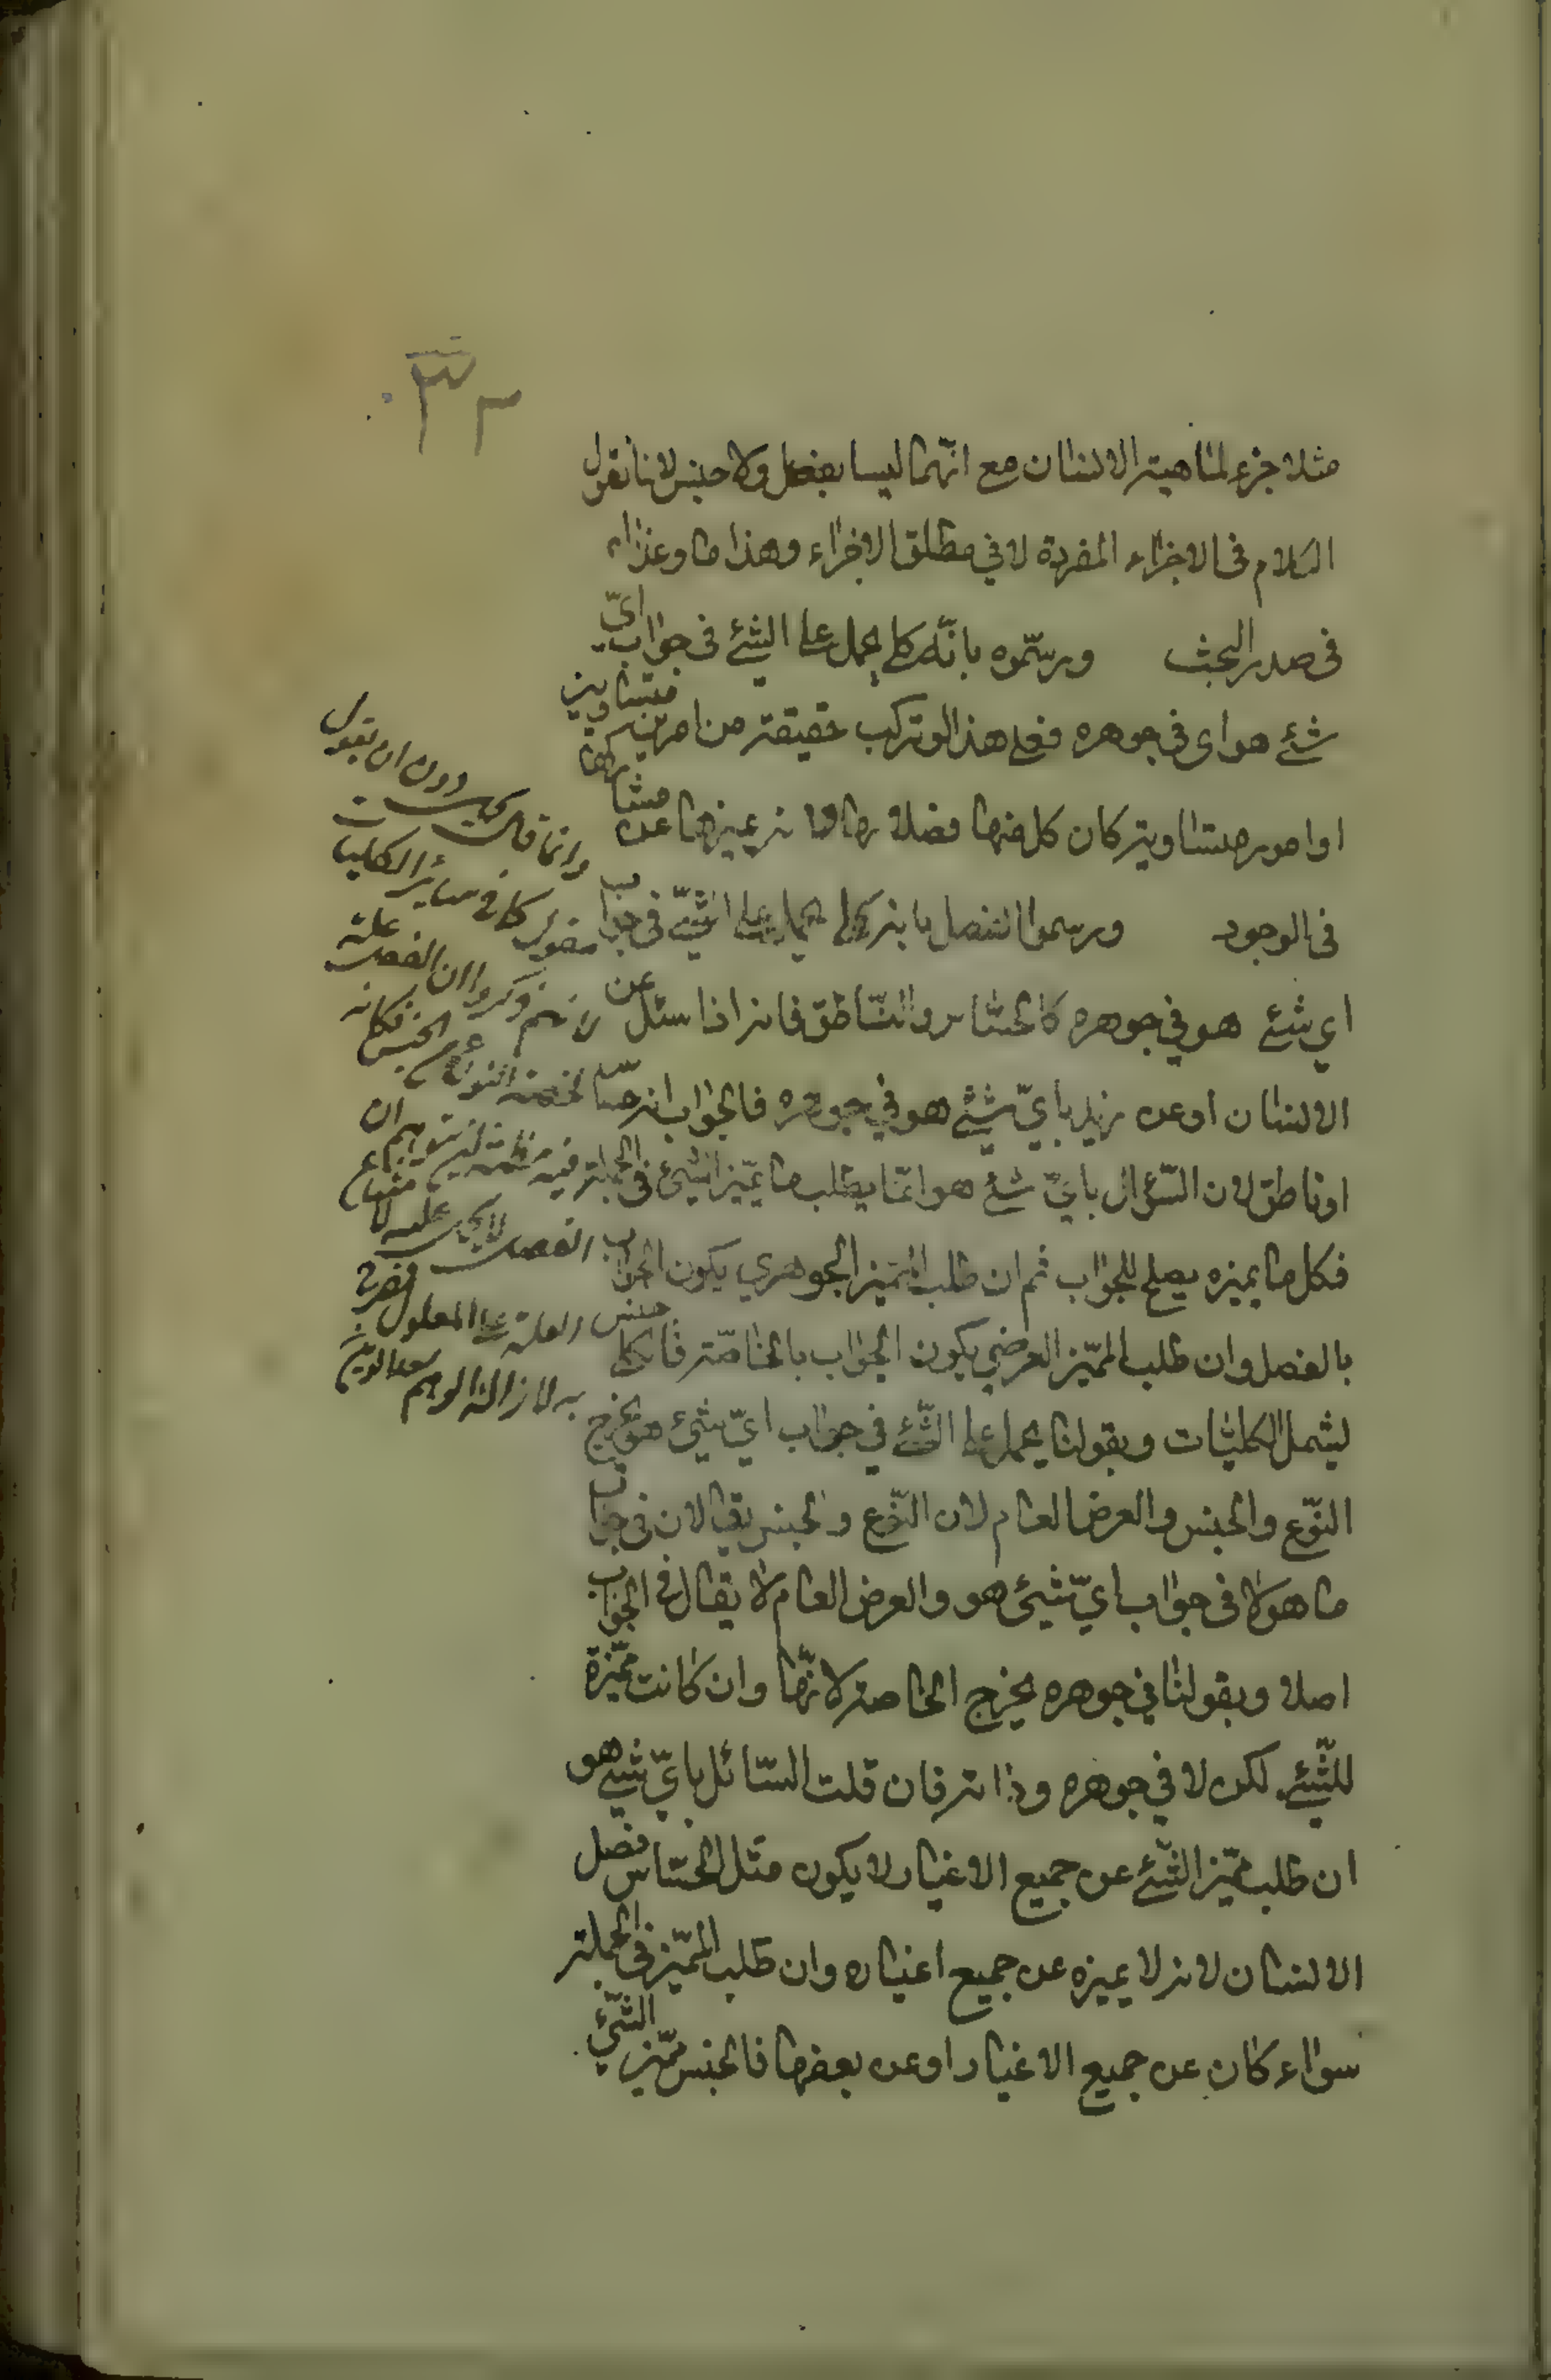 ٣٣
مثلا جزء لماهية الانسان مع انّهما ليسا بفصل ولا جنس لانا نقول
الكلام فى الاجزاء المفردة لا في مطلق الاجزاء وهذا ما وعدناه
فى صدر البحث ورسّموه بانّه كلي يحمل على الشئ فى جواب ايّ
شئ هو اى فى جوهره فعلى هذا لو تركب حقيقة من امرين متساويين
او امور متساوية كان كل منها فصلا لها لانه يميزها عن مشاركها
فى الوجود ورسموا الفصل بانه كلي يحمل على الشئ فى جواب
اي شئ هو في جوهره كالحسّاس والنّاطق فانه اذا سئل عن
الانسان او عن زيد بايّ شئ هو في جوهره فالجواب انه حسّاس
او ناطق لان السّؤال بايّ شئ هو انّما يطلب ما يميّز الشئ فى الجملة
فكل ما يميزه يصلح للجواب ثم ان طلب المميّز الجوهري يكون الجواب
بالفصل وان طلب المميّز العرضي يكون الجواب بالخاصّة فالكلي
ليشمل الكليّات وبقولنا يحمل على الشّئ في جواب ايّ شئ هو يخرج
النّوع والجنس والعرض العام لان النّوع والجنس يقالان فى جواب
ما هو لا فى جواب ايّ شئ هو والعرض العام لا يقال فى الجواب
اصلا وبقولنا في جوهره يخرج الخاصة لانّها وان كانت مميّزة
للشّئ لكن لا فى جوهره وذاته فان قلت السّائل بايّ شئ هو
ان طلب مميّز الشّئ عن جميع الاغيار لا يكون مثل الحسّاس فصل
الانسان لانه لا يميزه عن جميع اغياره وان طلب المميّز فى الجملة
سواء كان عن جميع الاغيار او عن بعضها فالجنس مميّز الشّئ
وانما قال يحمل دون ان يقول
مقول كما في سائر الكليات
لانهم ذكروا ان الفصل علة
لحصة النوع من الجنس فكانه
فيه مظنة ان يتوهم ان
الفصل لا يحمل على
الجنس العلة على المعلول فصرح
به لازالة الوهم سعد الدين